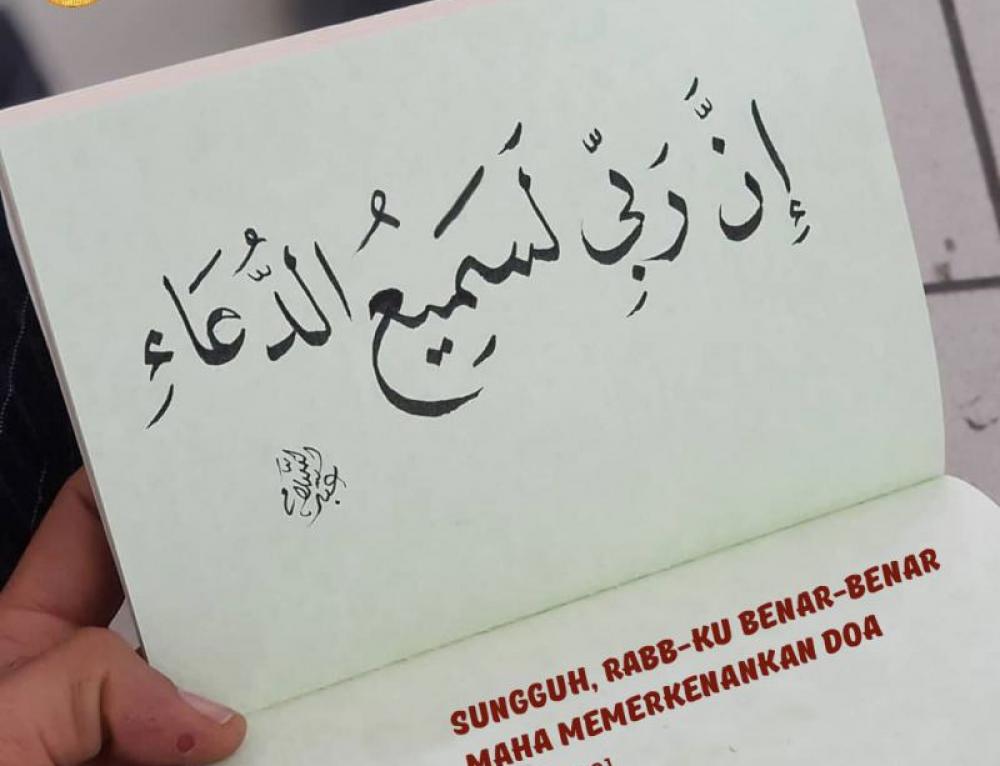 إِنَّ رَبِّي لَسَمِيعُ الدُّعَاءِ
عبد السلام
SUNGGUH, RABB-KU BENAR-BENAR
MAHA MEMERKENANKAN DOA